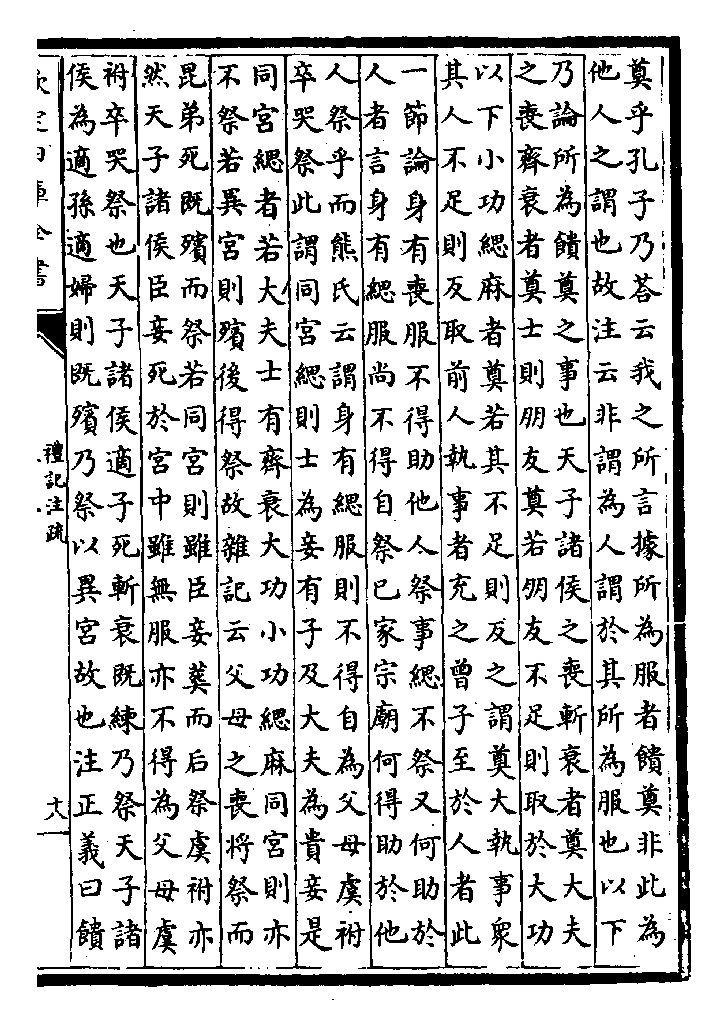 奠乎孔子乃荅云我之所言據所為服者饋奠非此為
他人之謂也故注云非謂為人謂於其所為服也以下
乃論所為饋奠之事也天子諸侯之喪斬衰者奠大夫
之喪齊衰者奠士則朋友奠若朋友不足則取於大功
以下小功緦麻者奠若其不足則反之謂奠大執事衆
其人不足則反取前人執事者充之曾子至於人者此
一節論身有喪服不得助他人祭事緦不祭又何助於
人者言身有緦服尚不得自祭已家宗廟何得助於他
人祭乎而熊氏云謂身有緦服則不得自為父母虞祔
卒哭祭此謂同宮緦則士為妾有子及大夫為貴妾是
同宮緦者若大夫士有齊衰大功小功緦麻同宮則亦
不祭若異宮則殯後得祭故雜記云父母之喪將祭而
昆弟死既殯而祭若同宮則雖臣妾葬而后祭虞祔亦
然天子諸侯臣妾死於宮中雖無服亦不得為父母虞
祔卒哭祭也天子諸侯適子死斬衰既練乃祭天子諸
侯為適孫適婦則既殯乃祭以異宮故也注正義曰饋
欽定四庫全書
禮記注疏
十八